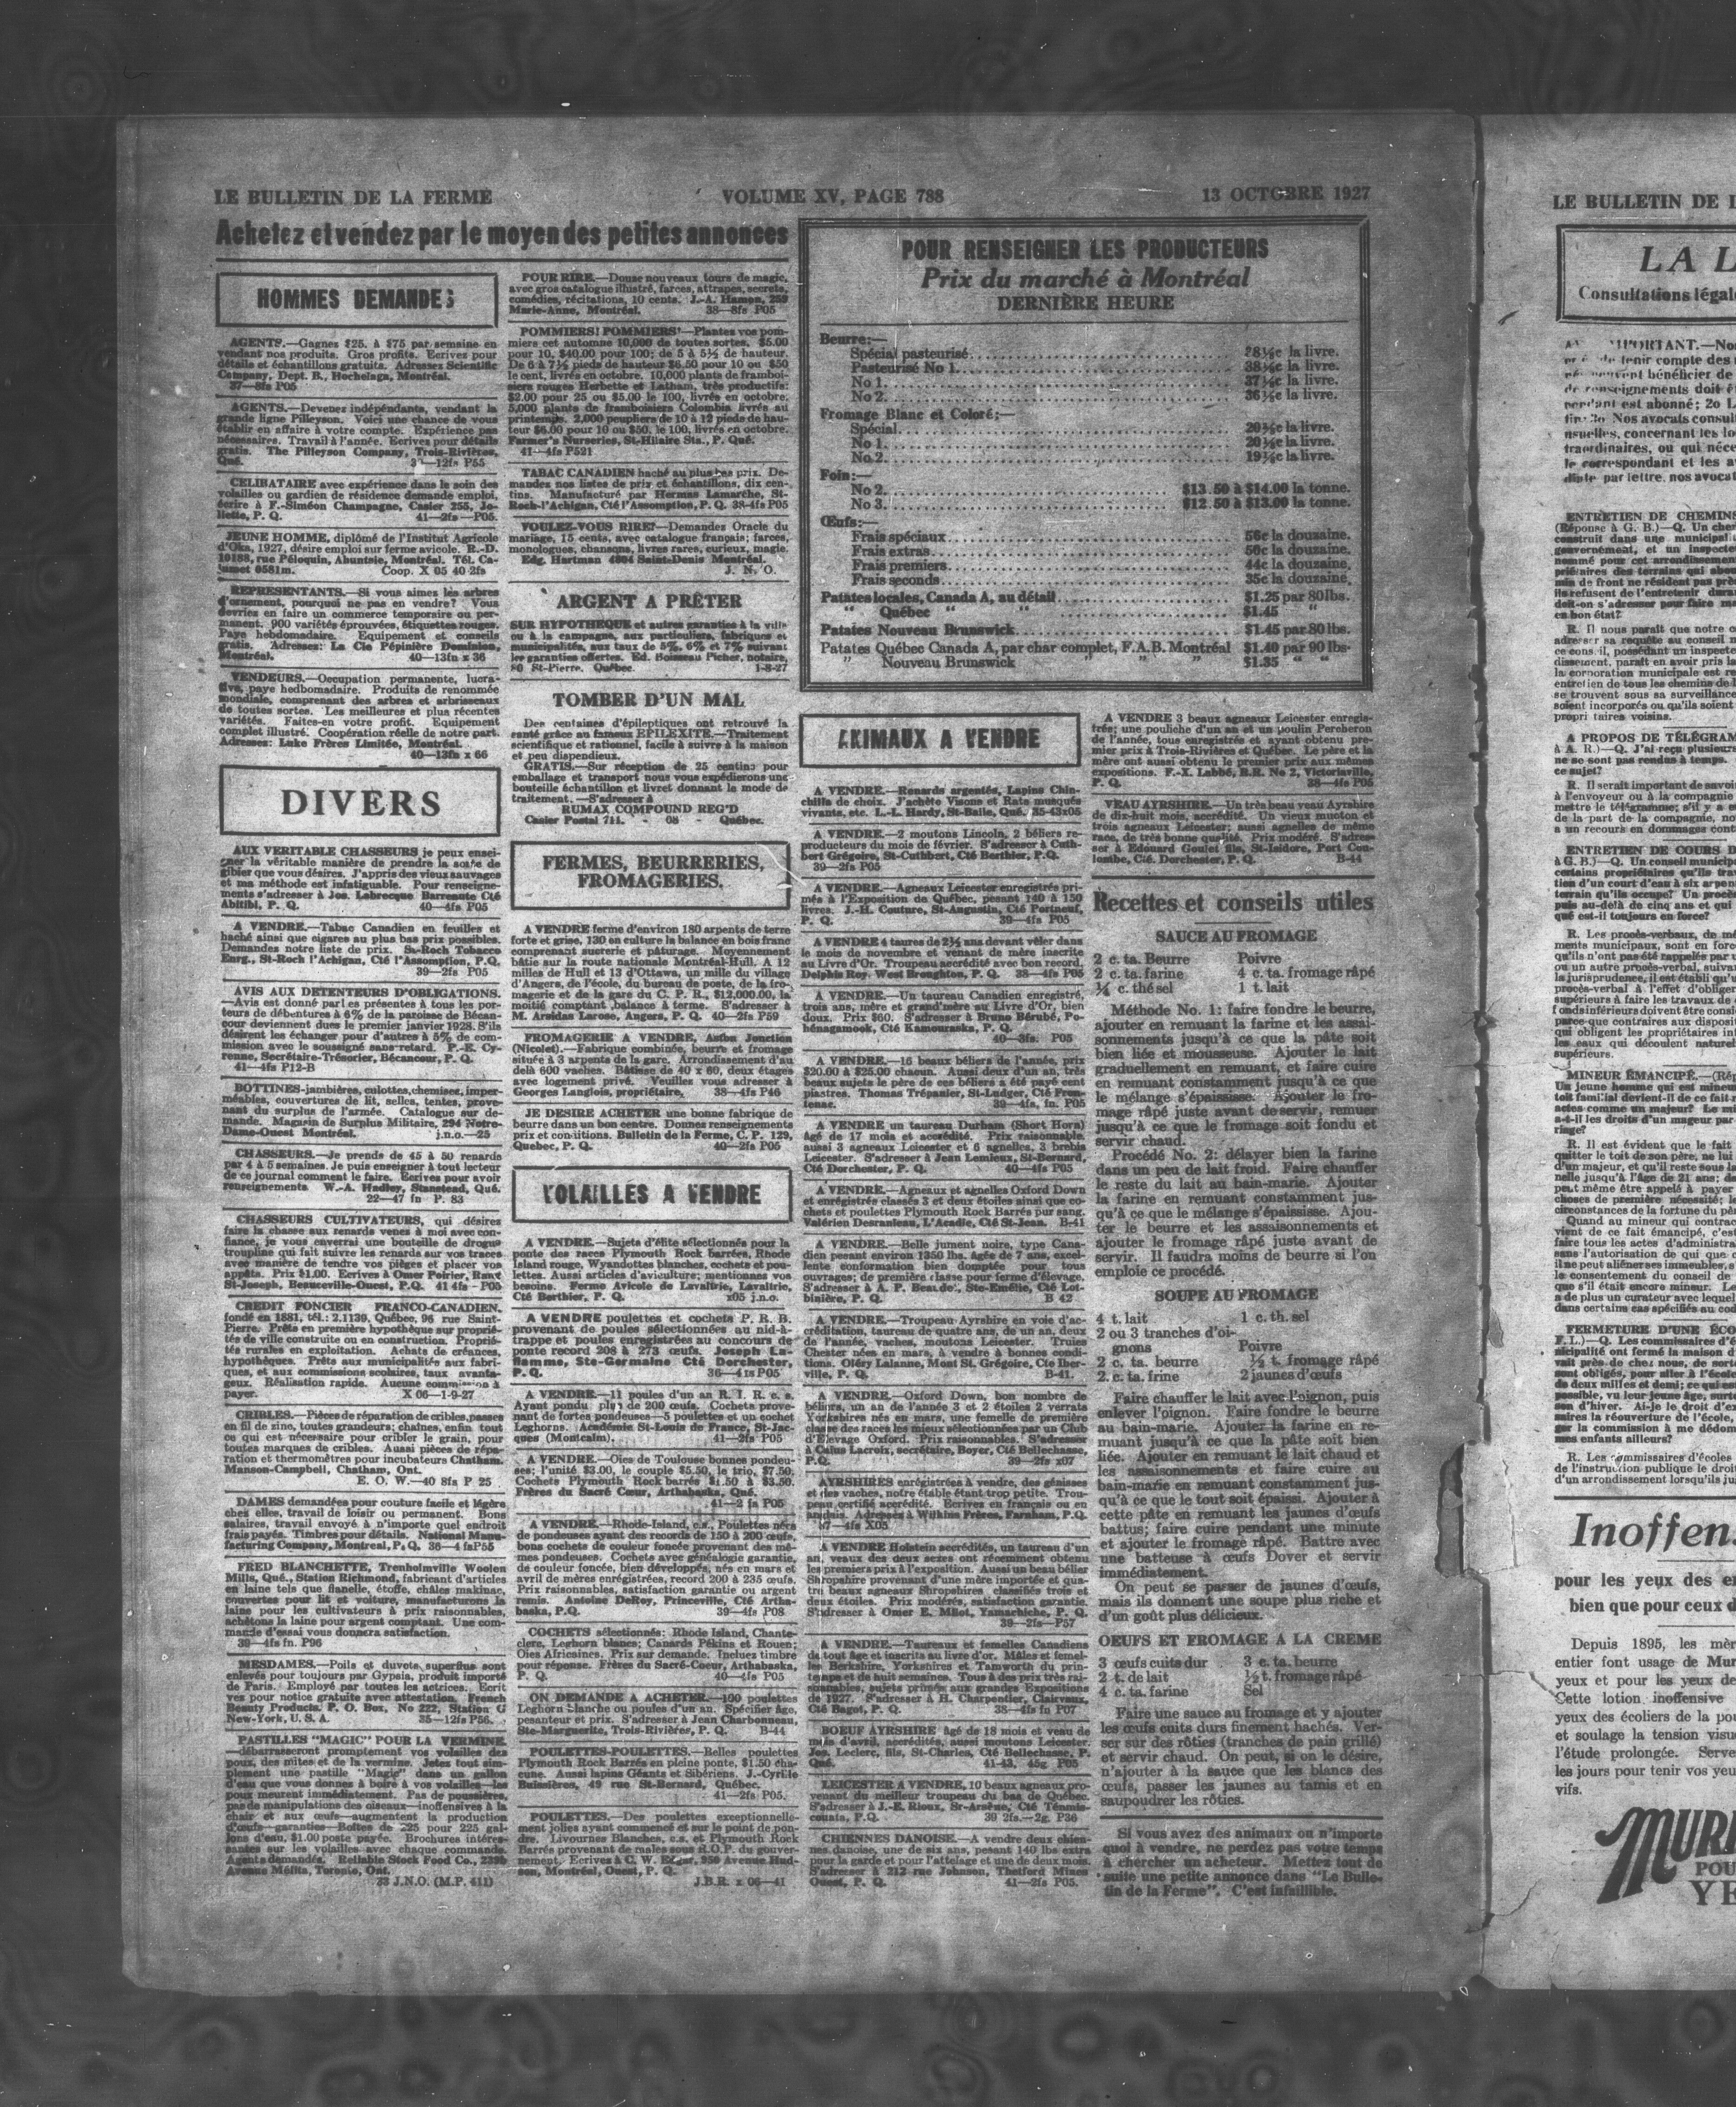 LE BULLETIN DE LA FERME
VOLUME XV, PAGE 788
13 OCTOBRE 1927
Achetez et vendez par le moyen des petites annonces
HOMMES DEMANDES
AGENTS.—Gagnez $25. à $75 par semaine en
vendant nos produits. Gros profits. Ecrivez pour
détails et échantillons gratuits. Adressez Scientific
Company, Dept. B., Hochelaga, Montréal.
37—8fs P05
AGENTS.—Devenez indépendants, vendant la
grande ligne Pilleyson. Voici une chance de vous
établir en affaire à votre compte. Expérience pas
nécessaires. Travail à l'année. Ecrivez pour détails
gratis. The Pilleyson Company, Trois-Rivières,
Qué.
—12fs P55
CELIBATAIRE avec expérience dans le soin des
volailles ou gardien de résidence demande emploi,
écrire à F.-Siméon Champagne, Casier 255, Jo-
liette, P. Q. 41—2fs—P05.
JEUNE HOMME, diplômé de l'Institut Agricole
d'Oka, 1927, désire emploi sur ferme avicole. R.-D.
10188, rue Péloquin, Ahuntsic, Montréal. Tél. Ca-
lumet 0581m. Coop. X 05 40 2fs
REPRESENTANTS.—Si vous aimez les arbres
d'ornement, pourquoi ne pas en vendre? Vous
devriez en faire un commerce temporaire ou per-
manent. 900 variétés éprouvées, étiquettes rouges.
Paye hebdomadaire. Equipement et conseils
gratis. Adressez: La Cie Pépinière Dominion,
Montréal. 40—13fn x 36
VENDEURS.—Occupation permanente, lucra-
tive, paye hedbomadaire. Produits de renommée
mondiale, comprenant des arbres et arbrisseaux
de toutes sortes. Les meilleures et plus récentes
variétés. Faites-en votre profit. Equipement
complet illustré. Coopération réelle de notre part.
Adressez: Luke Frères Limitée, Montréal.
40—13fn x 66
DIVERS
AUX VERITABLE CHASSEURS je peux ensei-
gner la véritable manière de prendre la sorte de
gibier que vous désires. J'appris des vieux sauvages
et ma méthode est infatiguable. Pour renseigne-
ments s'adresser à Jos. Labrecque Barreaute Cté
Abitibi, P. Q. 40—4fs P05
A VENDRE.—Tabac Canadien en feuilles et
haché ainsi que cigares au plus bas prix possibles.
Demandes notre liste de prix. Sa-Roch Tobacco
Enrg., St-Roch l'Achigan, Cté l'Assomption, P.Q.
39—2fs P05
AVIS AUX DETENTEURS D'OBLIGATIONS.
—Avis est donné par les présentes à tous les por-
teurs de débentures à 6% de la paroisse de Bécan-
cour deviennent dues le premier janvier 1928. S'ils
désirent les échanger pour d'autres à 5% de com-
mission avec le soussigné sans retard. P.-E. Cy-
renne, Secrétaire-Trésorier, Bécancour, P. Q.
41—4fs P12-B
BOTTINES-jambières, culottes, chemises, imper-
méables, couvertures de lit, selles, tentes, prove-
nant du surplus de l'armée. Catalogue sur de-
mande. Magasin de Surplus Militaire, 294 Notre-
Dame-Ouest Montréal. j.n.o.—25
CHASSEURS.—Je prends de 45 à 50 renards
par 4 à 5 semaines. Je puis enseigner à tout lecteur
de ce journal comment le faire. Ecrivez pour avoir
renseignements W.-A. Hadley, Stanstead, Qué.
22—47 fn P. 83
CHASSEURS CULTIVATEURS, qui désires
faire la chasse aux renards venez à moi avec con-
fiance, je vous enverrai une bouteille de drogue
troupline qui fait suivre les renards sur vos traces
avec manière de tendre vos pièges et placer vos
appâts. Prix $1.00. Ecrivez à Omer Poirier, Rang
St-Joseph, Beauceville-Ouest, P.Q. 41 4fs - P05
CREDIT FONCIER FRANCO-CANADIEN.
fondé en 1881, tél.: 2.1139, Québec, 96 rue Saint-
Pierre. Prêts en première hypothèque sur proprié-
tés de ville construite ou en construction. Proprié-
tés rurales en exploitation. Achats de créances,
hypothèques. Prêts aux municipalités aux fabri-
ques, et aux commissions scolaires, taux avanta-
geux. Réalisation rapide. Aucune commission à
payer. X 06—1-9-27
CRIBLES.—Pièces de réparation de cribles, passes
en fil de zinc, toutes grandeurs; chaînes, enfin tout
ce qui est nécessaire pour cribler le grain, pour
toutes marques de cribles. Aussi pièces de répa-
ration et thermomètres pour incubateurs Chatham.
Manson-Campbell, Chatham, Ont.
E. O. W.—40 8fs P 25
DAMES demandées pour couture facile et légère
chez elles, travail de loisir ou permanent. Bons
salaires, travail envoyé à n'importe quel endroit
frais payés. Timbres pour détails. National Manu-
facturing Company, Montreal, P. Q. 38—4 fsP55
FRED BLANCHETTE, Trenholmville Woolen
Mills, Qué., Station Richmond, fabricant d'articles
en laine tels que flanelle, étoffe, châles makinac,
couvertes pour lit et voiture, manufacturons la
laine pour les cultivateurs à prix raisonnables,
achètons la laine pour argent comptant. Une com-
mande d'essai vous donnera satisfaction.
39—4fs fn. P96
MESDAMES.—Poils et duvets superflus sont
enlevés pour toujours par Gypsia, produit importé
de Paris. Employé par toutes les actrices. Ecrit
ves pour notice gratuite avec attestation. French
Beauty Products. P. O. Box, No 222, Station G
New-York, U. S. A. 35—12fs P56.
PASTILLES "MAGIC" POUR LA VERMINE.
—débarrasseront promptement vos volailles des
poux, des mites et de la vermine. Jetez tout sim-
plement une pastille "Magic" dans un gallon
d'eau que vous donnes à boire à vos volailles—les
poux meurent immédiatement. Pas de poussières,
pas de manipulations des oiseaux—inoffensives à la
chair et aux œufs—augmentent la production
d'œufs—garanties—Boîtes de 225 pour 225 gal-
lons d'eau, $1.00 poste payée. Brochures intéres-
santes sur les volailles avec chaque commande.
Agents demandés. Reliable Stock Food Co., 239b
Avenue Mélita, Toronto, Ont.
33 J.N.O. (M.P. 411)
POUR RIRE.—Douze nouveaux tours de magic,
avec gros catalogue illustré, farces, attrapes, secrets,
comédies, récitations, 10 cents. J.-A. Hamon, 259
Marie-Anne, Montréal. 38—8fs P05
POMMIERS! POMMIERS!—Plantes vos pom-
miers cet automne 10,000 de toutes sortes. $5.00
pour 10, $40.00 pour 100; de 5 à 5½ de hauteur.
De 6 à 7½ pieds de hauteur $6.50 pour 10 ou $50
le cent, livrés en octobre. 10,000 plants de framboi-
siers rouges Herbette et Latham, très productifs:
$2.00 pour 25 ou $5.00 le 100, livrés en octobre.
5,000 plants de framboisiers Colombia livrés au
printemps. 2,000 peupliers de 10 à 12 pieds de hau-
teur $6.00 pour 10 ou $50. le 100, livrés en octobre.
Farmer's Nurseries, St-Hilaire Sta., P. Qué.
41—4fs P521
TABAC CANADIEN haché au plus bas prix. De-
mandes nos listes de prix et échantillons, dix cen-
tins. Manufacturé par Hermas Lamarche, St-
Roch-l'Achigan, Cté l'Assomption, P.Q. 38-4fs P05
VOULEZ-VOUS RIRE?—Demandes Oracle du
mariage, 15 cents, avec catalogue français; farces,
monologues, chansons, livres rares, curieux, magie.
Edg. Hartman 4504 Saint-Denis Montréal.
J. N. O.
ARGENT A PRÊTER
SUR HYPOTHEQUE et autres garanties à la ville
ou à la campagne, aux particuliers, fabriques et
municipalités, aux taux de 5%, 6% et 7% suivant
les garanties offertes. Ed. Boisseau Picher, notaire,
80 St-Pierre. Québec. 1-8-27
TOMBER D'UN MAL
Des centaines d'épileptiques ont retrouvé la
santé grâce au fameux EPILEXITE.—Traitement
scientifique et rationnel, facile à suivre à la maison
et peu dispendieux.
GRATIS.—Sur réception de 25 centins pour
emballage et transport nous vous expédierons une
bouteille échantillon et livret donnant la mode de
traitement. —S'adresser à
RUMAX COMPOUND REG'D
Casier Postal 711. - 08 - Québec.
FERMES, BEURRERIES,
FROMAGERIES.
A VENDRE ferme d'environ 180 arpents de terre
forte et grise, 130 en culture la balance en bois franc
comprenant sucrerie et pâturage. Moyennement
bâtie sur la route nationale Montréal-Hull. A 12
milles de Hull et 13 d'Ottawa, un mille du village
d'Angers, de l'école, du bureau de poste, de la fro-
magerie et de la gare du C. P. R., $12,000.00, la
moitié comptant balance à terme. S'adresser à
M. Arsidas Larose, Angers, P. Q. 40—2fs P59
FROMAGERIE A VENDRE, Aston Jonction
(Nicolet).—Fabrique combinée, beurre et fromage
située à 3 arpents de la gare. Arrondissement d'au
delà 600 vaches. Bâtisse de 40 x 60, deux étages
avec logement privé. Veuillez vous adresser à
Georges Langlois, propriétaire. 38—4fs P46
JE DESIRE ACHETER une bonne fabrique de
beurre dans un bon centre. Donnes renseignements
prix et conditions. Bulletin de la Ferme, C. P. 129,
Quebec, P. Q. 40—2fs P05
VOLAILLES A VENDRE
A VENDRE.—Sujets d'élite sélectionnés pour la
ponte des races Plymouth Rock barrées, Rhode
Island rouge, Wyandottes blanches, cochets et pou-
lettes. Aussi articles d'aviculture; mentionnez vos
besoins. Ferme Avicole de Lavaltrie, Lavaltrie,
Cté Berthier, P. Q. x05 j.n.o.
A VENDRE poulettes et cochets P. R. B.
provenant de poules sélectionnés au nid-à-
trappe et poules enregistrées au concours de
ponte record 208 à 273 œufs. Joseph La-
flamme, Ste-Germaine Cté Dorchester,
P. Q. 36—4fs P05
A VENDRE.—11 poules d'un an R. I. R. c. s.
Ayant pondu plus de 200 œufs. Cochets prove-
nant de fortes pondeuses—5 poulettes et un cochet
Leghorns. Académie St-Louis de France, St-Jac-
ques (Montcalm). 41—2fs P05
A VENDRE.—Oies de Toulouse bonnes pondeu-
ses; l'unité $3.00, le couple $5.50, le trio, $7.50.
Cochets Plymouth Rock barrés $1.50 à $3.50.
Frères du Sacré Cœur, Arthabaska, Qué.
41—2 fs P05
A VENDRE.—Rhode-Island, c.s., Poulettes nées
de pondeuses ayant des records de 150 à 200 œufs,
bons cochets de couleur foncée provenant des mê-
mes pondeuses. Cochets avec généalogie garantie,
de couleur foncée, bien développés, nés en mars et
avril de mères enregistrées, record 200 à 235 œufs.
Prix raisonnables, satisfaction garantie ou argent
remis. Antoine DeRoy, Princeville, Cté Artha-
baska, P.Q. 39—4fs P08
COCHETS sélectionnés: Rhode Island, Chante-
clerc, Leghorn blancs; Canards Pékins et Rouen;
Oies Africaines. Prix sur demande. Incluez timbre
pour réponse. Frères du Sacré-Coeur, Arthabaska,
P. Q. 40—4fs P05
ON DEMANDE A ACHETER.—100 poulettes
Leghorn blanche ou poules d'un an. Spécifier âge,
pesanteur et prix. S'adresser à Jean Charbonneau,
Ste-Marguerite, Trois-Rivières, P. Q. B-44
POULETTES-POULETTES.—Belles poulettes
Plymouth Rock Barrés en pleine ponte, $1.50 cha-
cune. Aussi lapins Géants et Sibériens. J.-Cyrille
Buissières, 49 rue St-Bernard, Québec.
41—2fs P05.
POULETTES.—Des poulettes exceptionnelle-
ment jolies ayant commencé et sur le point de pon-
dre. Livournes Blanches, c.s. et Plymouth Rock
Barrés provenant de males sous R.O.P. du gouver-
nement. Ecrives à C. W. Edgar, 950 Avenue Hud-
son, Montréal, Ouest, P. Q.
J.B.R. x 06—41
POUR RENSEIGNER LES PRODUCTEURS
Prix du marché à Montréal
DERNIÈRE HEURE
Beurre:—
Spécial pasteurisé 28½c la livre.
Pasteurisé No 1. 38½c la livre.
No 1. 37½c la livre.
No 2. 36½c la livre.
Fromage Blanc et Coloré:—
Spécial. 20½c la livre.
No 1. 20½c la livre.
No 2. 19½c la livre.
Foin:—
No 2. $13.50 à $14.00 la tonne.
No 3. $12.50 à $13.00 la tonne.
Œufs:—
Frais spéciaux 56c la douzaine.
Frais extras. 50c la douzaine.
Frais premiers. 44c la douzaine.
Frais seconds. 35c la douzaine.
Patates locales, Canada A, au détail $1.25 par 80 lbs.
" Québec " " $1.45 "
Patates Nouveau Brunswick. $1.45 par 80 lbs.
Patates Québec Canada A, par char complet, F.A.B. Montréal $1.40 par 90 lbs.
" Nouveau Brunswick " " " $1.35 " "
ANIMAUX A VENDRE
A VENDRE.—Renards argentés, Lapins Chin-
chilla de choix. J'achète Visons et Rats musqués
vivants, etc. L.-L. Hardy, St-Basile, Qué. 35-43x05
A VENDRE.—2 moutons Lincoln, 2 béliers re-
producteurs du mois de février. S'adresser à Cuth-
bert Grégoire, St-Cuthbert, Cté Berthier, P.Q.
39—2fs P05
A VENDRE.—Agneaux Leicester enregistrés pri-
més à l'Exposition de Québec, pesant 140 à 150
livres. J.-H. Couture, St-Augustin, Cté Portneuf,
P. Q. 39—4fs P05
A VENDRE 4 taures de 2½ ans devant vêler dans
le mois de novembre et venant de mère inscrite
au Livre d'Or. Troupeau accrédité avec bon record.
Delphis Roy, West Broughton, P. Q. 38—4fs P05
A VENDRE.—Un taureau Canadien enregistré,
trois ans, mère et grand'mère au Livre d'Or, bien
doux. Prix $60. S'adresser à Bruno Bérubé, Po-
hénagamook, Cté Kamouraska, P. Q.
40—3fs. P05
A VENDRE.—16 beaux béliers de l'année, prix
$20.00 à $25.00 chacun. Aussi deux d'un an, très
beaux sujets le père de ces béliers a été payé cent
piastres. Thomas Trépanier, St-Ludger, Cté Fron-
tenac. 39—4fs, fn. P05
A VENDRE un taureau Durham (Short Horn)
âgé de 17 mois et accrédité. Prix raisonnable.
aussi 3 agneaux Leicester et 6 agnelles, 3 brebis
Leicester. S'adresser à Jean Lemieux, St-Bernard,
Cté Dorchester, P. Q. 40—4fs P05
A VENDRE.—Agneaux et agnelles Oxford Down
et enrégistrés classés 3 et deux étoiles ainsi que co-
chets et poulettes Plymouth Rock Barrés pur sang.
Valérien Desranleau, L'Acadie, Cté St-Jean. B-41
A VENDRE.—Belle jument noire, type Cana-
dien pesant environ 1350 lbs. âgée de 7 ans, excel-
lente conformation bien domptée pour tous
ouvrages; de première classe pour ferme d'élevage.
S'adresser à A. P. Beaudet, Ste-Emélie, Cté Lot-
binière, P. Q. B 42
A VENDRE.—Troupeau Ayrshire en voie d'ac-
créditation, taureau de quatre ans, de un an, deux
de l'année, vaches, moutons Leicester. Truies
Chester nées en mars, à vendre à bonnes condi-
tions. Oléry Lalanne, Mont St. Grégoire, Cte Iber-
ville, P. Q. B-41.
A VENDRE.—Oxford Down, bon nombre de
béliers, un an de l'année 3 et 2 étoiles 2 verrats
Yorkshires nés en mars, une femelle de première
classe des races les mieux sélectionnées par un Club
d'Elevage Oxford. Prix raisonnables. S'adresser
à Caius Lacroix, secrétaire, Boyer, Cté Bellechasse,
P.Q. 39—2fs x07
AYRSHIRES enrégistrées à vendre, des génisses
et des vaches, notre étable étant trop petite. Trou-
peau certifié accrédité. Ecrivez en français ou en
anglais. Adressez à Wilkins Frères, Farnham, P.Q.
37—4fs X05
A VENDRE Holstein accrédités, un taureau d'un
an, veaux des deux sexes ont récemment obtenu
les premiers prix à l'exposition. Aussi un beau bélier
Shropshire provenant d'une mère importée et qua-
tre beaux agneaux Shropshires classifiés trois et
deux étoiles. Prix modérés, satisfaction garantie.
S'adresser à Omer E. Milot, Yamachiche, P. Q.
39—2fs—P57
A VENDRE.—Taureaux et femelles Canadiens
de tout âge et inscrits au livre d'or. Mâles et femel-
les Berkshire, Yorkshires et Tamworth du prin-
temps et de huit semaines. Tous à des prix très rai-
sonnables, sujets primés aux grandes Expositions
de 1927. S'adresser à H. Charpentier, Clairvaux,
Cté Bagot, P. Q. 38—4fs fn P07
BOEUF AYRSHIRE âgé de 18 mois et veau de
mois d'avril, accrédités, aussi moutons Leicester.
Jos. Leclerc, fils, St-Charles, Cté Bellechasse, P.
Qué. 41-43, 45g P05
LEICESTER A VENDRE, 10 beaux agneaux pro-
venant du meilleur troupeau du bas de Québec.
S'adresser à J.-E. Rioux, Sr-Arsène, Cté Témis-
couata, P.Q. 39 2fs.—2g. P36
CHIENNES DANOISE.—A vendre deux chien-
nes danoise, une de six ans, pesant 140 lbs extra
pour la garde et pour l'attelage et une de deux mois.
S'adresser à 212 rue Johnson, Thetford Mines
Ouest, P. Q. 41—2fs P05.
A VENDRE 3 beaux agneaux Leicester enregis-
trés; une pouliche d'un an et un poulin Percheron
de l'année, tous enregistrés et ayant obtenu pre-
mier prix à Trois-Rivières et Québec. Le père et la
mère ont aussi obtenu le premier prix aux mêmes
expositions. F.-X. Labbé, R.R. No 2, Victoriaville,
P. Q. 38—4fs P05
VEAU AYRSHIRE.—Un très beau veau Ayrshire
de dix-huit mois, accrédité. Un vieux mouton et
trois agneaux Leicester; aussi agnelles de même
race, de très bonne qualité. Prix modéré. S'adres-
ser à Edouard Goulet fils, St-Isidore, Port Cou-
lombe, Cté. Dorchester, P. Q. B-44
Recettes et conseils utiles
SAUCE AU FROMAGE
2 c. ta. Beurre Poivre
2 c. ta. farine 4 c. ta. fromage râpé
¼ c. thé sel 1 t. lait
Méthode No. 1: faire fondre le beurre,
ajouter en remuant la farine et les assai-
sonnements jusqu'à ce que la pâte soit
bien liée et mousseuse. Ajouter le lait
graduellement en remuant, et faire cuire
en remuant constamment jusqu'à ce que
le mélange s'épaississe. Ajouter le fro-
mage râpé juste avant de servir, remuer
jusqu'à ce que le fromage soit fondu et
servir chaud.
Procédé No. 2: délayer bien la farine
dans un peu de lait froid. Faire chauffer
le reste du lait au bain-marie. Ajouter
la farine en remuant constamment jus-
qu'à ce que le mélange s'épaississe. Ajou-
ter le beurre et les assaisonnements et
ajouter le fromage râpé juste avant de
servir. Il faudra moins de beurre si l'on
emploie ce procédé.
SOUPE AU FROMAGE
4 t. lait 1 c. th. sel
2 ou 3 tranches d'oi-
gnons Poivre
2 c. ta. beurre ½ t. fromage râpé
2. c. ta. frine 2 jaunes d'œufs
Faire chauffer le lait avec l'oignon, puis
enlever l'oignon. Faire fondre le beurre
au bain-marie. Ajouter la farine en re-
muant jusqu'à ce que la pâte soit bien
liée. Ajouter en remuant le lait chaud et
les assaisonnements et faire cuire au
bain-marie en remuant constamment jus-
qu'à ce que le tout soit épaissi. Ajouter à
cette pâte en remuant les jaunes d'œufs
battus; faire cuire pendant une minute
et ajouter le fromage râpé. Battre avec
une batteuse à œufs Dover et servir
immédiatement.
On peut se passer de jaunes d'œufs,
mais ils donnent une soupe plus riche et
d'un goût plus délicieux.
OEUFS ET FROMAGE A LA CREME
3 œufs cuits dur 3 c. ta. beurre
2 t. de lait ½ t. fromage râpé
4 c. ta. farine Sel
Faire une sauce au fromage et y ajouter
les œufs cuits durs finement hachés. Ver-
ser sur des rôties (tranches de pain grillé)
et servir chaud. On peut, si on le désire,
n'ajouter à la sauce que les blancs des
œufs, passer les jaunes au tamis et en
saupoudrer les rôties.
Si vous avez des animaux ou n'importe
quoi à vendre, ne perdez pas votre temps
à chercher un acheteur. Mettez tout de
suite une petite annonce dans "Le Bulle-
tin de la Ferme". C'est infaillible.
LE BULLETIN DE L
LA L
Consultations légale
tenir compte des
bénéficier de
de renseignements doit ê
pendant est abonné; 2o L
Nos avocats consul
nsuelles, concernant les lo
traordinaires, ou qui néce
le correspondant et les a
par lettre, nos avocat
ENTRETIEN DE CHEMINS
(Réponse à G. B.)—Q. Un che
construit dans une municipal
gouvernement, et un inspecte
nommé pour cet arrondissemen
priétaires des terrains qui abou
min de front ne résident pas prè
ils refusent de l'entretenir dura
doit-on s'adresser pour faire
en bon état?
R. Il nous paraît que notre c
adresser sa requête au conseil m
ce conseil, possédant un inspecte
dissement, paraît en avoir pris la
la corporation municipale est re
entretien de tous les chemins de l
se trouvent sous sa surveillance
soient incorporés ou qu'ils soient
propriétaires voisins.
A PROPOS DE TÉLÉGRAM
à A. R.)—Q. J'ai reçu plusieurs
ne se sont pas rendus à temps.
ce sujet?
R. Il serait important de savoi
à l'envoyeur ou à la compagnie
mettre le télégramme; s'il y a e
de la part de la compagnie, no
a un recours en dommages cont
ENTRETIEN DE COURS D
à G. B.)—Q. Un conseil municip
certains propriétaires qu'ils trav
tien d'un court d'eau à six arpen
terrain qu'ils occupe? Un procè
puis au-délà de cinq ans et qui
qué est-il toujours en force?
R. Les procès-verbaux, de mê
ments municipaux, sont en forc
qu'ils n'ont pas été rappelés par u
ou un autre procès-verbal, suivan
la jurisprudence, il est établi qu'u
procès-verbal à l'effet d'obliger
supérieurs à faire les travaux de
fonds inférieurs doivent être consi
parce que contraires aux disposit
qui obligent les propriétaires inf
les eaux qui découlent naturel
supérieurs.
MINEUR ÉMANCIPÉ.—(Rép
Un jeune homme qui est mineu
toit familial devient-il de ce fait
actes comme un majeur? Le m
a-t-il les droits d'un mageur par
riage?
R. Il est évident que le fait
quitter le toit de son père, ne lui
d'un majeur, et qu'il reste sous la
nelle jusqu'à l'âge de 21 ans; de
peut même être appelé à payer
choses de première nécessité; la
circonstances de la fortune du pè
Quand au mineur qui contrac
vient de ce fait émancipé, c'est
faire tous les actes d'administra
sans l'autorisation de qui que c
il ne peut aliéner ses immeubles, s
le consentement du conseil de
que s'il était encore mineur. Le
a de plus un curateur avec lequel
dans certains cas spécifiés au cod
FERMETURE D'UNE ÉCO
F.L.)—Q. Les commissaires d'é
nicipalité ont fermé la maison d'
vait près de chez nous, de sorte
sont obligés, pour aller à l'école
de deux milles et demi; ce qui es
possible, vu leur jeune âge, surt
son d'hiver. Ai-je le droit d'ex
saires la réouverture de l'école,
ger la commission à me dédom
mes enfants ailleurs?
R. Les commissaires d'écoles
de l'instruction publique le droit
d'un arrondissement lorsqu'ils ju
Inoffen
pour les yeux des en
bien que pour ceux d
Depuis 1895, les mèr
entier font usage de Mur
yeux et pour les yeux de
Cette lotion inoffensive
yeux des écoliers de la pou
et soulage la tension visue
l'étude prolongée. Serve
les jours pour tenir vos yeu
vifs.
MURI
POU
YE